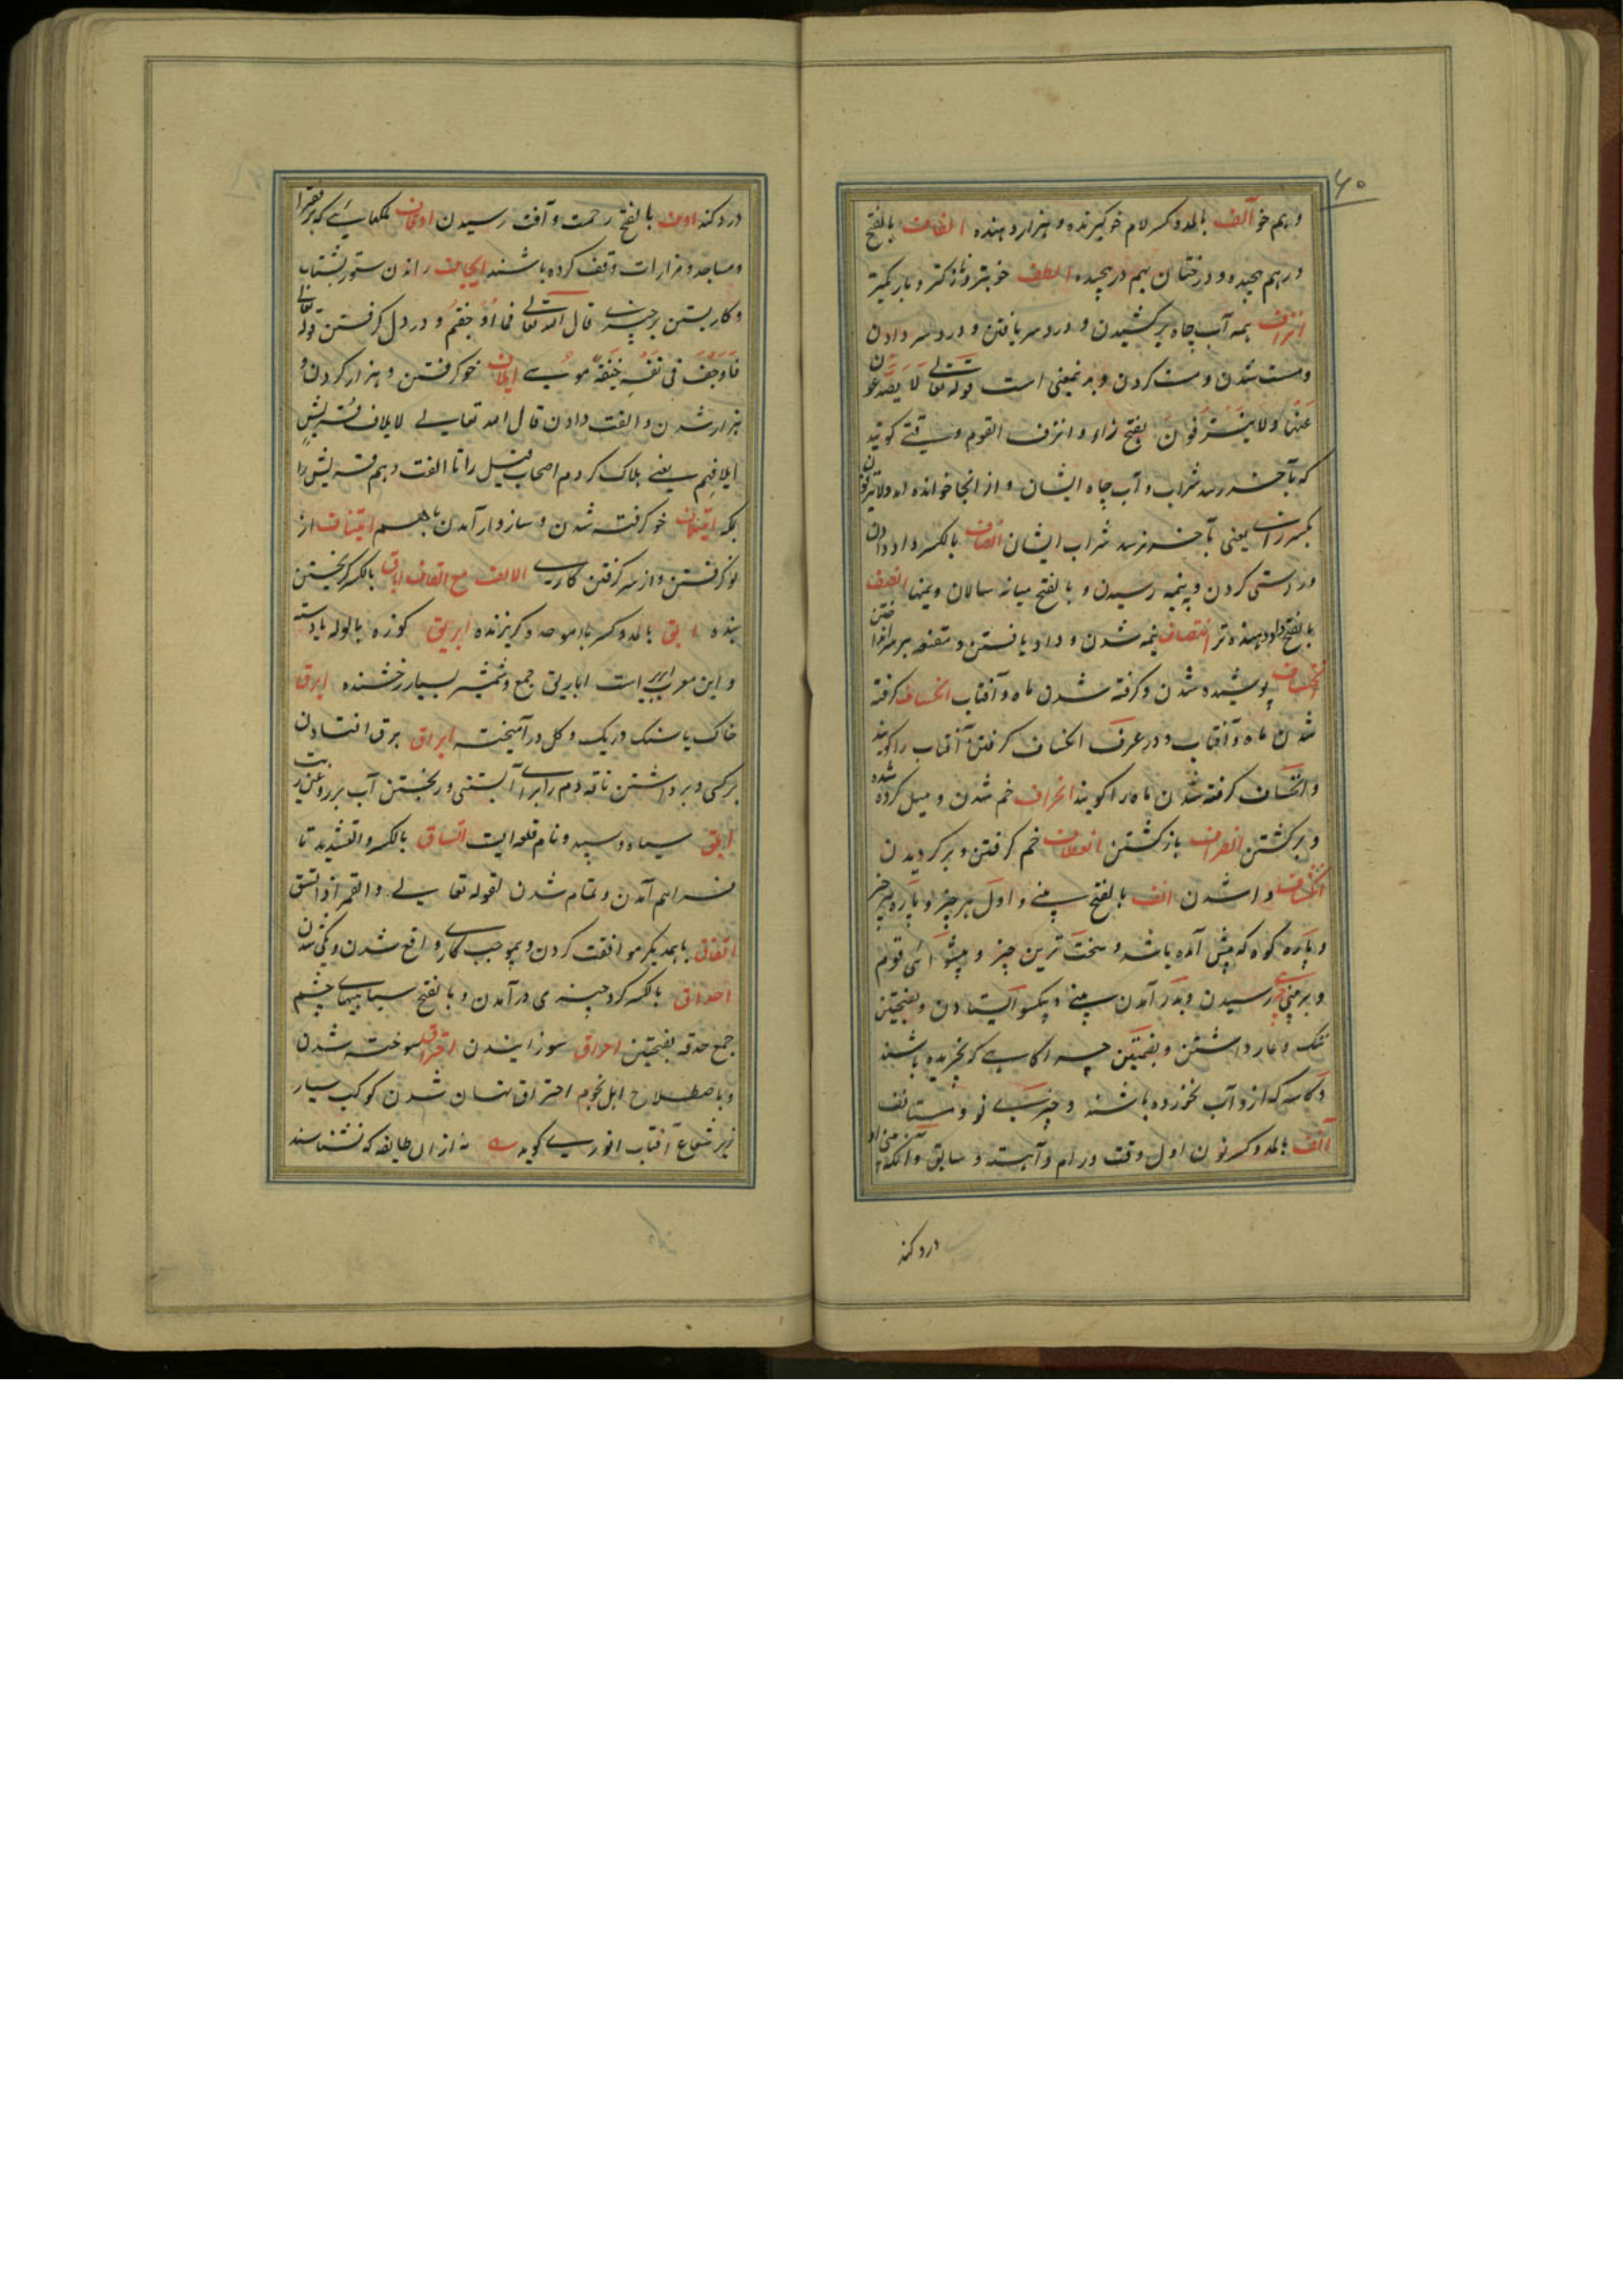 ۶۰
و هم خو آلف بالمد و کسر لام خو گیرنده و هزار دهنده الفاف بالفتح
درهم پیچیده و درختان بهم در پیچیده الطف خوبتر و نازکتر و باریکتر
انزاف همه آب چاه برکشیدن و درد سر یافتن و درد سر دادن
و مست شدن و مست کردن و بدین معنی است قوله تعالی لا یصدعون
عنها ولا ینزفون بفتح زاء و انزف القوم وقتی گویند
که بآخر رسد شراب و آب چاه ایشان و از اینجا خوانده اند ولا ینزفون
بکسر زاء یعنی بآخر نرسد شراب ایشان انصاف بالکسر داد دادن
و راستی کردن و به نیمه رسیدن و بالفتح میانه سالان و نیمها انصف
بالفتح داد دهنده تر انتصاف نیمه شدن و داد یافتن و مقنعه بر سر انداختن
انخساف پوشیده شدن و گرفته شدن ماه و آفتاب انکساف گرفته
شدن ماه و آفتاب و در عرف انکساف گرفتن آفتاب را گویند
و انخساف گرفته شدن ماه را گویند انحراف خم شدن و میل کرده شده
و برگشتن انصراف بازگشتن انعطاف خم گرفتن و برگردیدن
انکشاف وا شدن انف بالفتح بینی و اول هر چیز و پاره هر چیز
و پاره کوه که پیش آمده باشد و سخت ترین چیز و پیشوائی قوم
و بر بینی رسیدن و بدر آمدن بینی و یکسو ایستادن و بفتحتین
ننگ و عار داشتن و بضمتین چراگاهی که نچریده باشند
و کاسه که از و آب نخورده باشند و چیزی نو و مستانف
آنف بالمد و کسر نون اول وقت و رام و آهسته و سابق و آنکه بینی او
درد کند
درد کند اوف بالفتح زحمت و آفت رسیدن اوقاف ملکهائی که بر فقرا
و مساجد و مزارات وقف کرده باشند ایجاف راندن ستور بشتاب
و کار بستن بر چیزی قال الله تعالی فما اوجفتم و در دل گرفتن قوله تعالی
فاوجف فی نفسه خیفة موسی ایلاف خو گرفتن و هزار کردن و
هزار شدن و الفت دادن قال الله تعالی لایلاف قریش
ایلافهم یعنی هلاک کردم اصحاب فیل را تا الفت دهم قریش را
بمکه ایتلاف خو گرفته شدن و سازوار آمدن باهم ایتناف از
نو گرفتن و از سر گرفتن کاری الالف مع القاف اباق بالکسر گریختن
بنده آبق بالمد و کسر باء موحده گریزنده ابریق کوزه بالوله یا دسته
و این معرب آبریز است اباریق جمع و شمشیر بسیار رخشنده ابرق
خاک با سنگ و ریگ و گل در آمیخته ابراق برق افتادن
بر کسی و برداشتن ناقه دم را برای آبستنی و ریختن آب بر روغن زیت
ابلق سیاه و سپید و نام قلعه ایست اتساق بالکسر و التشدید تا
فراهم آمدن و تمام شدن لقوله تعالی والقمر اذا اتسق
اتفاق با همدیگر موافقت کردن و بموجب کار واقع شدن و یکی شدن
احداق بالکسر گرد چیزی در آمدن و بالفتح سیاهیهای چشم
جمع حدقه بفتحتین احراق سوزانیدن احتراق سوخته شدن
و باصطلاح اهل نجوم احتراق نهان شدن کوکب سیار
زیر شعاع آفتاب انوری گوید نه ازان طایفه که نشناسند